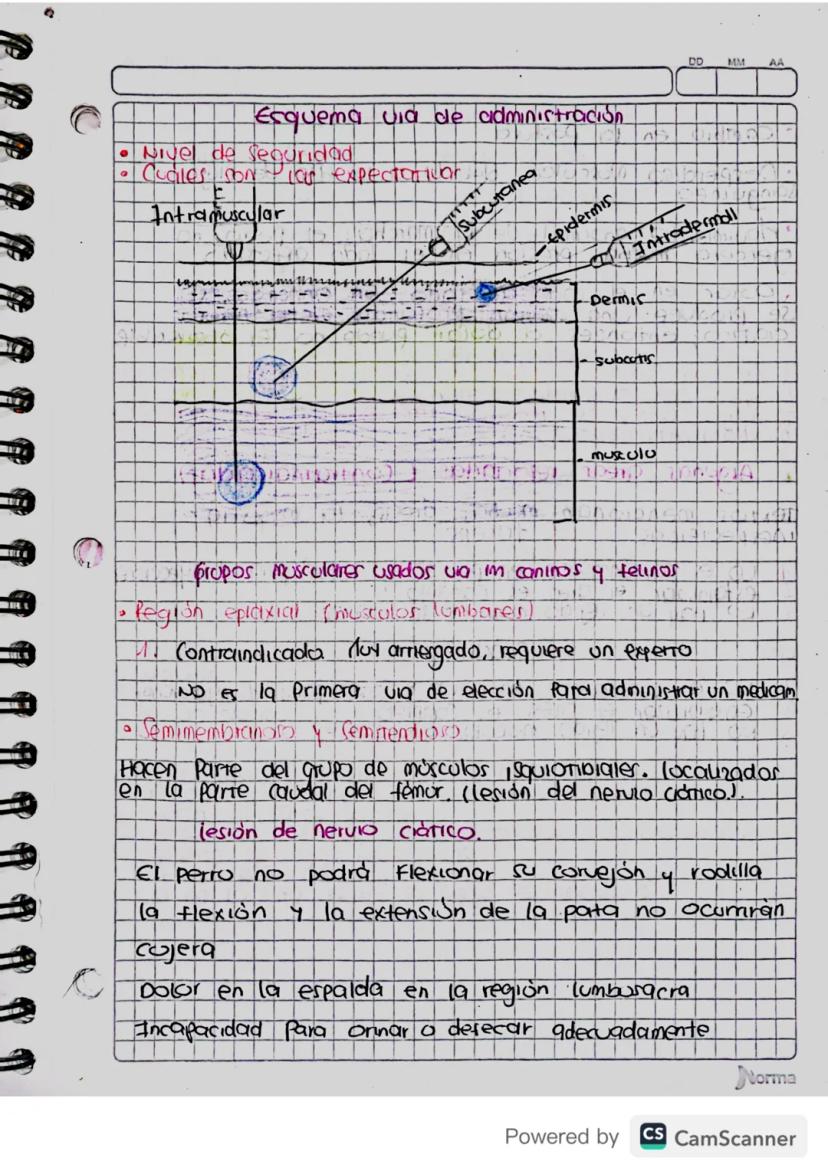 DD MM AA
Esquema via de administración
• Nivel de seguridad
• Cuáles son las expectativas
Intramuscular
subcutanea
epidermis
Intradermall
Dermis
subcutis
musculo
Grupos musculares usados via im caninos y felinos
• Región epiaxial (musculos lumbares)
1. Contraindicada Muy arriesgado, requiere un experto
NO es la primera via de elección para administrar un medicam
• Semimembranoso y Semitendioso
Hacen parte del grupo de músculos isquiotibiales. localizados
en la parte caudal del fémur. (lesión del nervio ciático).
lesión de nervio ciático.
El perro no podrá flexionar su corvejón y rodilla
la flexión y la extensión de la pata no ocurrirán
cojera
Dolor en la espalda en la región lumbosacra
Incapacidad para orinar o defecar adecuadamente
Norma
Powered by CS CamScanner